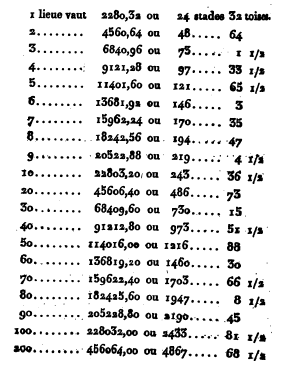 1 lieue vaut 2280,32 ou 24 stades 32 toises.
2........ 4560,64 ou 48..... 64
3........ 6840,96 ou 73..... 1 1/2
4........ 9121,28 ou 97..... 33 1/2
5........ 11401,60 ou 121..... 65 1/2
6........ 13681,92 ou 146..... 3
7........ 15962,24 ou 170..... 35
8........ 18242,56 ou 194..... 47
9........ 20522,88 ou 219..... 4 1/2
10........ 22803,20 ou 243..... 36 1/2
20........ 45606,40 ou 486..... 73
30........ 68409,60 ou 730..... 15
40........ 91212,80 ou 973..... 51 1/2
50........ 114016,00 ou 1216..... 88
60........ 136819,20 ou 1460..... 30
70........ 159622,40 ou 1703..... 66 1/2
80........ 182425,60 ou 1947..... 8 1/2
90........ 205228,80 ou 2190..... 45
100........ 228032,00 ou 2433..... 81 1/2
200........ 456064,00 ou 4867..... 68 1/2